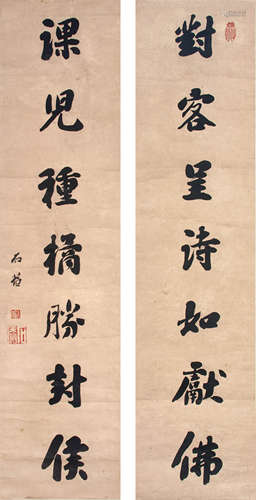 對客呈诗如獻佛
课児種橘勝封侯